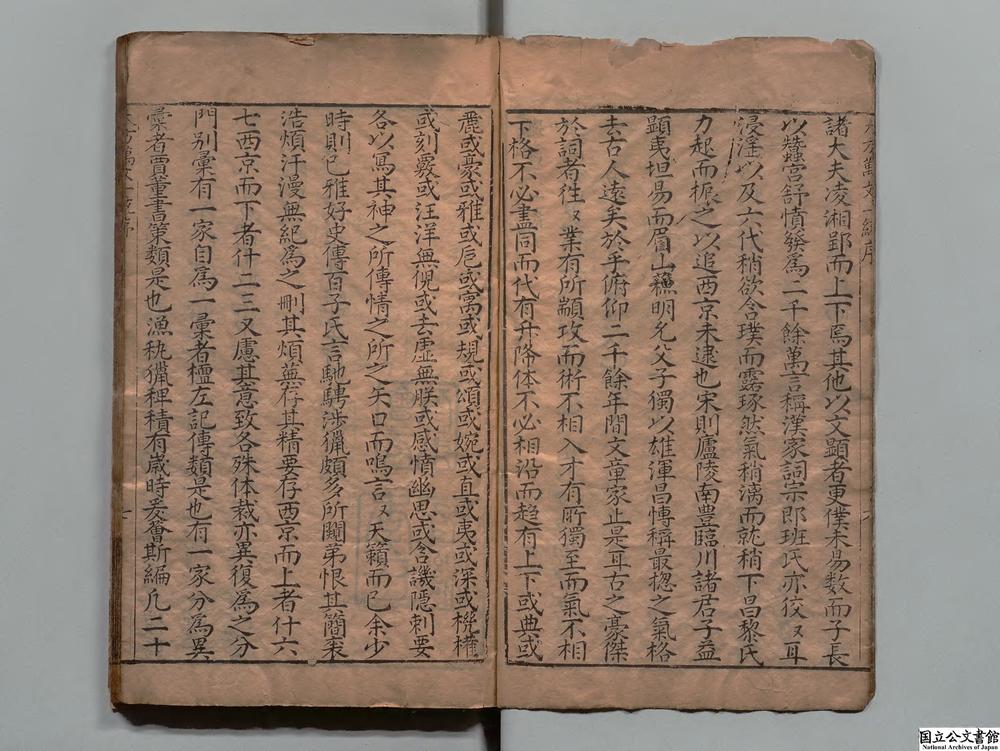 諸大夫凌湘郢而上下焉其他以文顯者更僕未易數而子長
以蠶宮舒憤發為二千餘萬言稱漢家詞宗郎班氏亦伇〻耳
浸淫以及六代稍欲含璞而露琢然氣稍漓而就稍下昌黎氏
力起而振之以追西京未逮也宋則廬陵南豊臨川諸君子益
顯夷坦易而眉山蘓明允父子獨以雄渾昌愽稱最揔之氣格
去古人逺矣於乎俯仰二千餘年間文章家止是耳古之豪傑
於詞者徃〻業有所顓攻而術不相入才有所獨至而氣不相
下格不必盡同而代有升降体不必相沿而趋有上下或典或
麗或豪或雅或卮或寓或規或頌或婉或直或夷或深或機權
或刻覈或汪洋無倪或去虛無朕或感憤幽思或含譏隱刺要
各以寫其神之所傳情之所之矢口而鳴言〻天籟而已余少
時則已雅好史傳百子氏言馳騁涉獵頗多所闚弟恨其簡袠
浩煩汗漫無紀為之刪其煩蕪存其精要存西京而上者什六
七西京而下者什二三又慮其意致各殊体裁亦異復為之分
門別彙有一家自為一彙者檀左記傳類是也有一家分為異
彙者賈董書策類是也漁秇獵稗積有歲時爰薈斯編凡二十
国立公文書館
National Archives of Japan